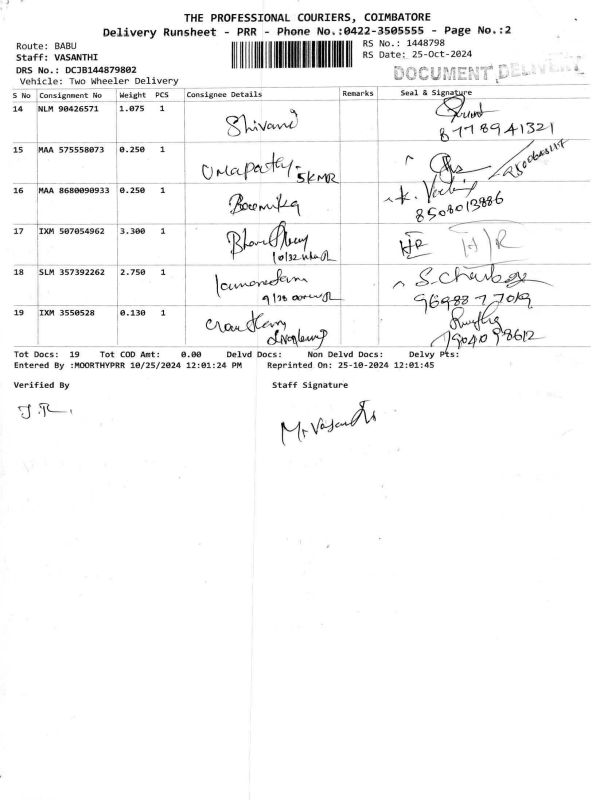 THE PROFESSIONAL COURIERS, COIMBATORE
Delivery Runsheet - PRR - Phone No.:0422-3505555 - Page No.:2
Route: BABU
RS No.: 1448798
Staff: VASANTHI
RS Date: 25-Oct-2024
DRS No.: DCJB144879802
DOCUMENT DELIVERY
Vehicle: Two Wheeler Delivery
S No Consignment No Weight PCS Consignee Details Remarks Seal & Signature
14 NLM 90426571 1.075 1 Shivani
8778941321
15 MAA 575558073 0.250 1 Umapathy
5 KMR
16 MAA 8680090933 0.250 1 Boomika
8508013886
17 IXM 507054962 3.300 1 HR H/R
18 SLM 357392262 2.750 1
19 IXM 3550528 0.130 1
7904098612
Tot Docs: 19 Tot COD Amt: 0.00 Delvd Docs: Non Delvd Docs: Delvy Pts:
Entered By :MOORTHYPRR 10/25/2024 12:01:24 PM Reprinted On: 25-10-2024 12:01:45
Verified By Staff Signature